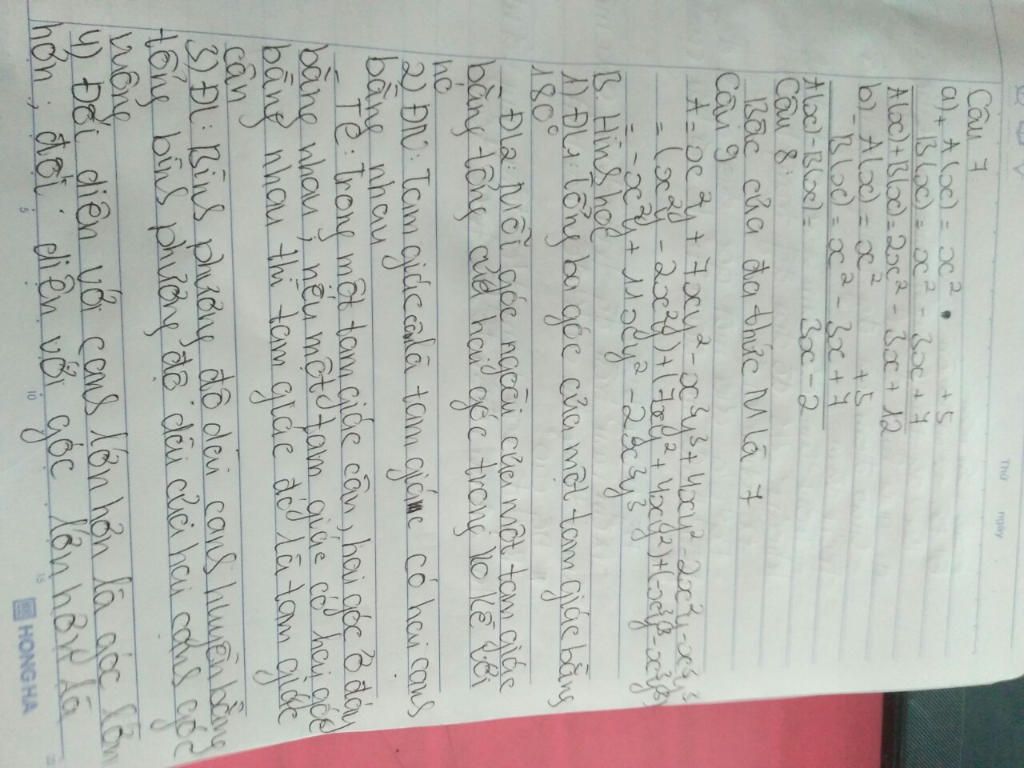 Thứ
ngày
Câu 7
a) + A(x) = x² + 5
B(x) = x² - 3x + 7
A(x)+B(x) = 2x² - 3x + 12
b) A(x) = x² + 5
- B(x) = x² - 3x + 7
A(x) - B(x) = 3x - 2
Câu 8:
Bậc của đa thức M là 7
Câu 9
A = x²y + 7xy² - x³y³ + 4xy² - 2x²y - x³y³
= (x²y - 2x²y) + (7xy² + 4xy²) + (-x³y³ - x³y³)
= -x²y + 11xy² - 2x³y³
B. Hình học
1) ĐL1: Tổng ba góc của một tam giác bằng
180°
ĐL2: Mỗi góc ngoài của một tam giác
bằng tổng của hai góc trong ko kề với
nó
2) ĐN: Tam giác cân là tam giác có hai cạnh
bằng nhau
TC: Trong một tam giác cân, hai góc ở đáy
bằng nhau; nếu một tam giác có hai góc
bằng nhau thì tam giác đó là tam giác
cân
3) ĐL: Bình phương độ dài cạnh huyền bằng
tổng bình phương độ dài của hai cạnh góc
vuông
4) Đối diện với cạnh lớn hơn là góc lớn
hơn; đối diện với góc lớn hơn là
5
10
15
HONG HA